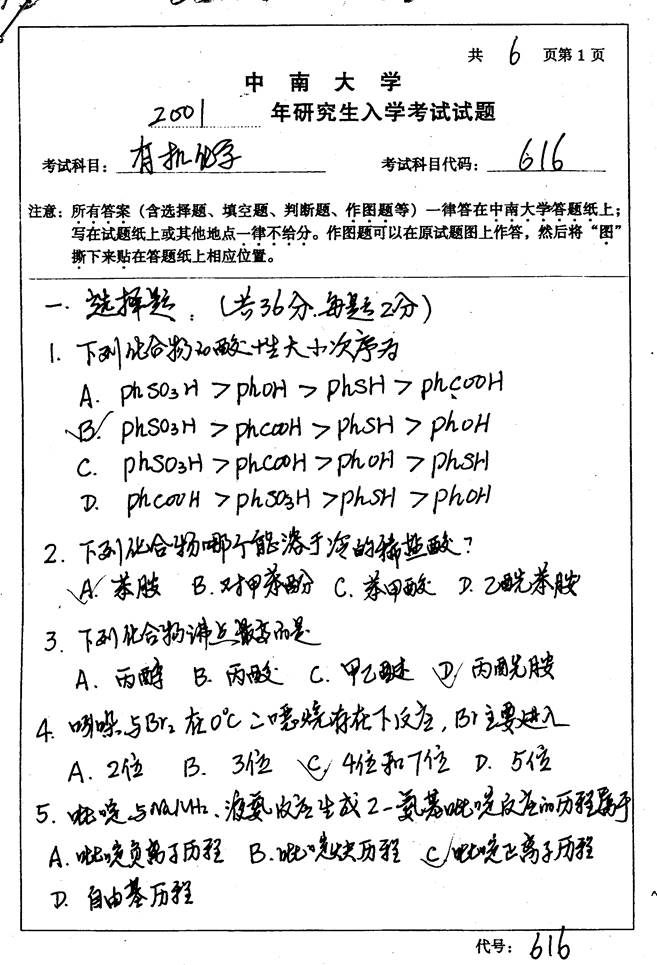 共 6 页第 1 页
中 南 大 学
2001 年研究生入学考试试题
考试科目： 有机化学 考试科目代码： 616
注意：所有答案（含选择题、填空题、判断题、作图题等）一律答在中南大学答题纸上；
写在试题纸上或其他地点一律不给分。作图题可以在原试题图上作答，然后将“图”
撕下来贴在答题纸上相应位置。
一. 选择题：（共36分.每题2分）
1. 下列化合物的酸性大小次序为
A. phSO3H > phOH > phSH > phCOOH
B. phSO3H > phCOOH > phSH > phOH
C. phSO3H > phCOOH > phOH > phSH
D. phCOOH > phSO3H > phSH > phOH
2. 下列化合物哪个能溶于冷的稀盐酸?
A. 苯胺 B. 对甲苯酚 C. 苯甲酸 D. 乙酰苯胺
3. 下列化合物沸点最高的是
A. 丙醇 B. 丙酸 C. 甲乙醚 D. 丙酰胺
4. 吲哚与Br2在0℃二噁烷存在下反应, Br主要进入
A. 2位 B. 3位 C. 4位和7位 D. 5位
5. 吡啶与NaNH2、液氨反应生成2-氨基吡啶反应的历程属于
A. 吡啶负离子历程 B. 吡啶炔历程 C. 吡啶正离子历程
D. 自由基历程
代号： 616